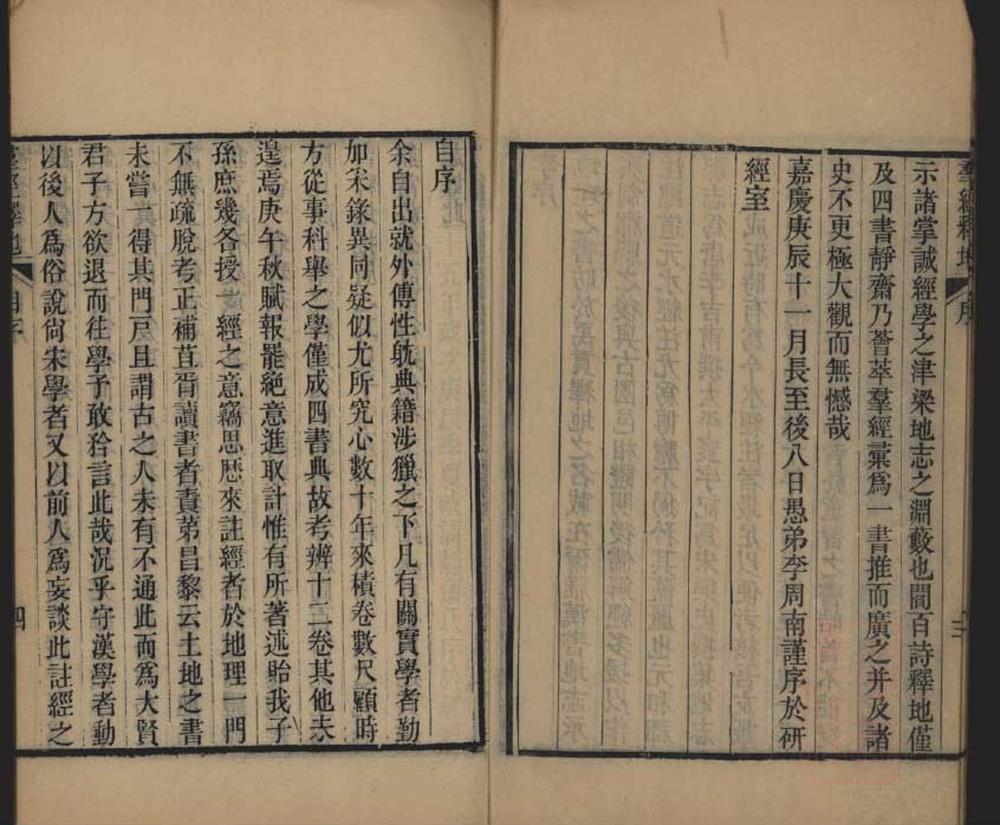 羣經釋地 序
示諸掌誠經學之津梁地志之淵藪也閻百詩釋地僅
及四書靜齋乃薈萃羣經彙爲一書推而廣之并及諸
史不更極大觀而無憾哉
嘉慶庚辰十一月長至後八日愚弟李周南謹序於研
經室
自序
余自出就外傅性躭典籍涉獵之下凡有關實學者勤
加采錄異同疑似尤所究心數十年來積卷數尺顧時
方從事科舉之學僅成四書典故考辨十二卷其他未
遑焉庚午秋賦報罷絶意進取計惟有所著述貽我子
孫庶幾各授一經之意竊思歴來註經者於地理一門
不無疏脫考正補苴胥讀書者責苐昌黎云土地之書
未嘗一得其門戸且謂古之人未有不通此而爲大賢
君子方欲退而往學予敢矜言此哉況乎守漢學者動
以後人爲俗說尙宋學者又以前人爲妄談此註經之
羣經釋地 自序 四